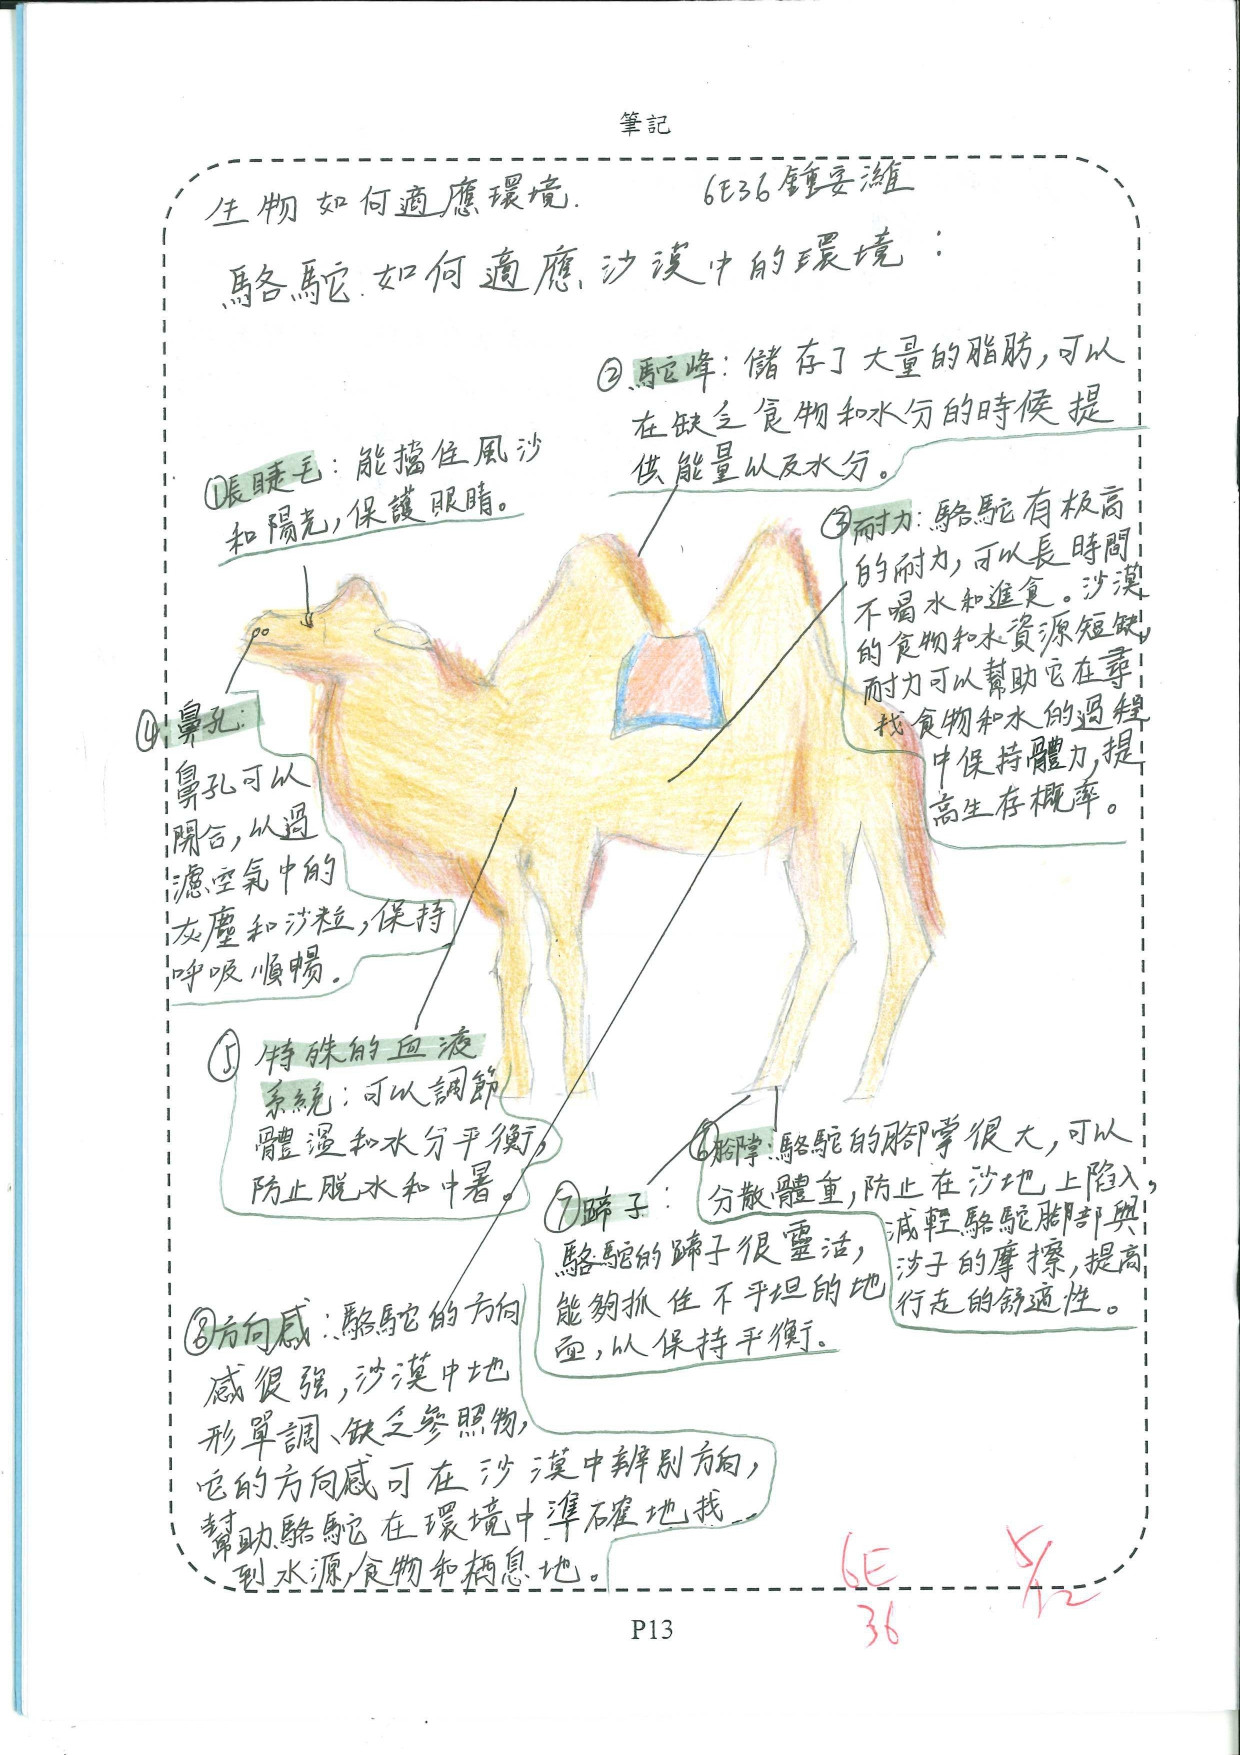 筆記
生物如何適應環境.
6E36 鍾安濰
駱駝如何適應沙漠中的環境：
②駝峰：儲存了大量的脂肪，可以
在缺乏食物和水分的時候提
供能量以及水分。
①長睫毛：能擋住風沙
和陽光，保護眼睛。
③耐力：駱駝有極高
的耐力，可以長時間
不喝水和進食。沙漠
的食物和水資源短缺，
耐力可以幫助它在尋
找食物和水的過程
中保持體力，提
高生存概率。
④鼻孔：
鼻孔可以
開合，以過
濾空氣中的
灰塵和沙粒，保持
呼吸順暢。
⑤特殊的血液
系統：可以調節
體溫和水分平衡，
防止脫水和中暑。
⑥腳掌：駱駝的腳掌很大，可以
分散體重，防止在沙地上陷入，
減輕駱駝腳部與
沙子的摩擦，提高
行走的舒適性。
⑦蹄子：
駱駝的蹄子很靈活，
能夠抓住不平坦的地
面，以保持平衡。
⑧方向感：駱駝的方向
感很強，沙漠中地
形單調、缺乏參照物，
它的方向感可在沙漠中辨別方向，
幫助駱駝在環境中準確地找
到水源，食物和栖息地。
6E
36
5/12
P13